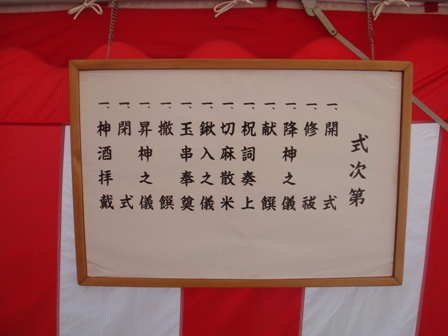 式次第
一、開式
一、修祓
一、降神之儀
一、献饌
一、祝詞奏上
一、切麻散米
一、鍬入之儀
一、玉串奉奠
一、撤饌
一、昇神之儀
一、閉式
一、神酒拝戴